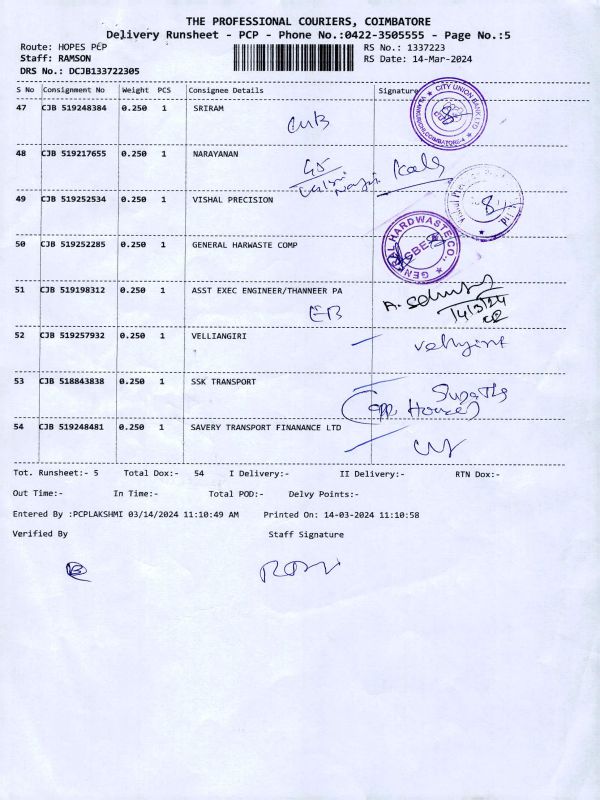 THE PROFESSIONAL COURIERS, COIMBATORE
Delivery Runsheet - PCP - Phone No.:0422-3505555 - Page No.:5
Route: HOPES PCP RS No.: 1337223
Staff: RAMSON RS Date: 14-Mar-2024
DRS No.: DCJB133722305
S No Consignment No Weight PCS Consignee Details Signature
47 CJB 519248384 0.250 1 SRIRAM
CUB
CITY UNION BANK LTD
48 CJB 519217655 0.250 1 NARAYANAN
45
49 CJB 519252534 0.250 1 VISHAL PRECISION
50 CJB 519252285 0.250 1 GENERAL HARWASTE COMP
GENERAL HARDWASTE CO.,
51 CJB 519198312 0.250 1 ASST EXEC ENGINEER/THANNEER PA
EB
14/3/24
52 CJB 519257932 0.250 1 VELLIANGIRI
53 CJB 518843838 0.250 1 SSK TRANSPORT
54 CJB 519248481 0.250 1 SAVERY TRANSPORT FINANANCE LTD
Tot. Runsheet:- 5 Total Dox:- 54 I Delivery:- II Delivery:- RTN Dox:-
Out Time:- In Time:- Total POD:- Delvy Points:-
Entered By :PCPLAKSHMI 03/14/2024 11:10:49 AM Printed On: 14-03-2024 11:10:58
Verified By Staff Signature